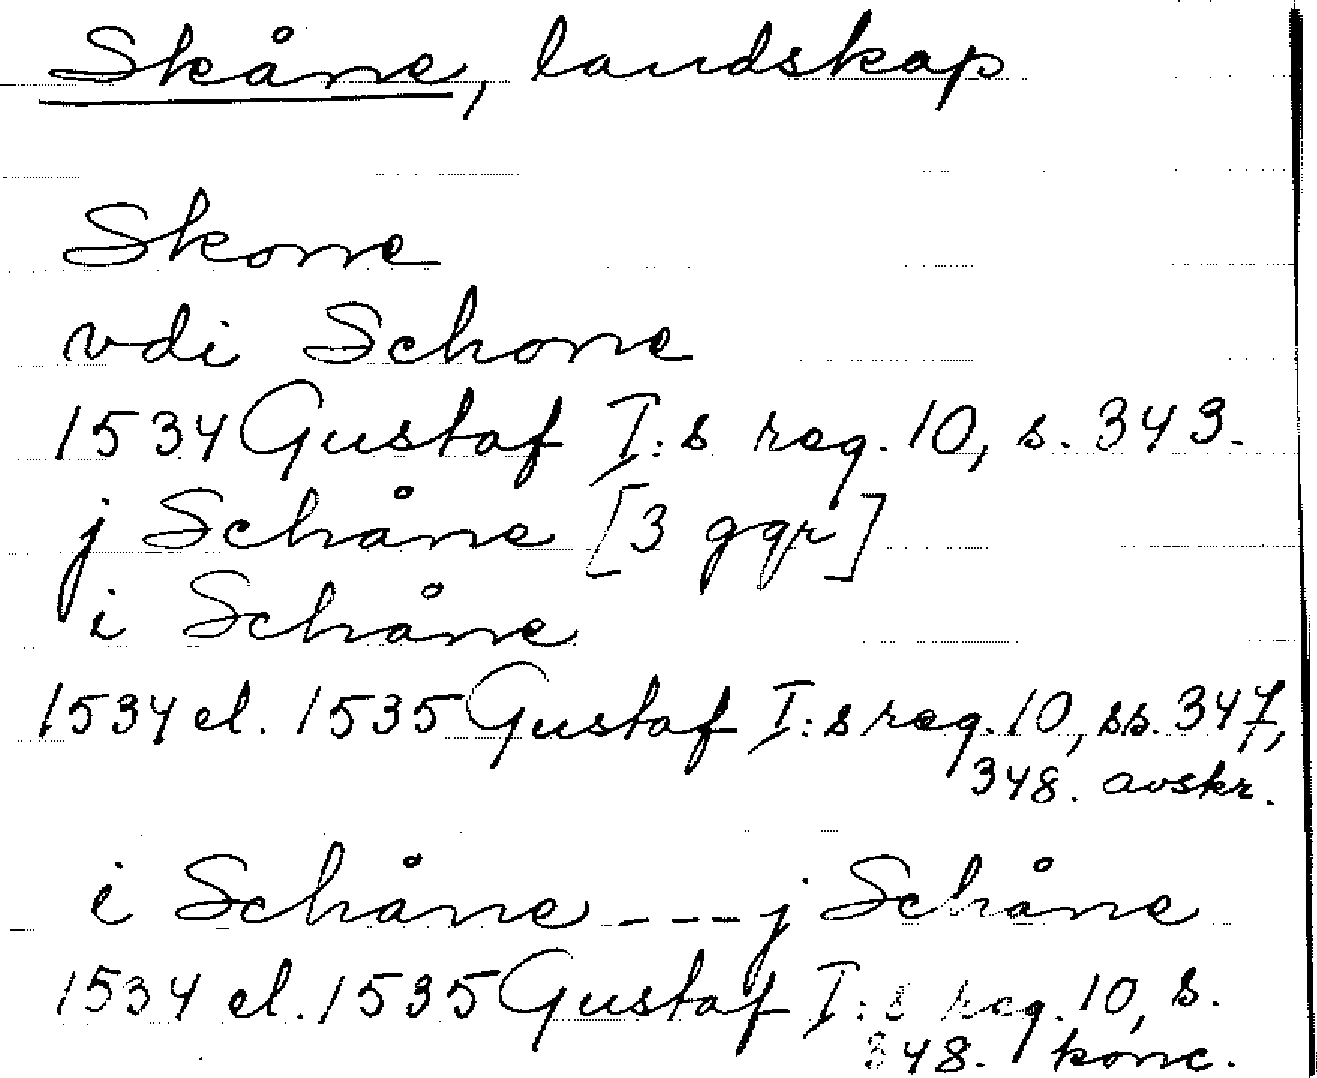 Skåne, landskap
Skone
vdi Schone
1534 Gustaf I:s reg. 10, s. 343.
j Schåne [3 ggr]
i Schåne
1534 el. 1535 Gustaf I:s reg. 10, ss. 347,
348. avskr.
i Schåne --- j Schåne
1534 el. 1535 Gustaf I:s reg. 10, s.
348. konc.